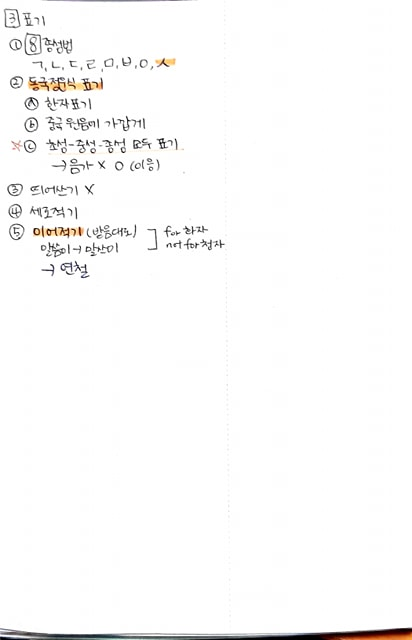 3 표기
① 8종성법
ㄱ, ㄴ, ㄷ, ㄹ, ㅁ, ㅂ, ㅇ, ㅅ
② 동국정운식 표기
ⓐ 한자표기
ⓑ 중국 원음에 가깝게
☆ ⓒ 초성-중성-종성 모두 표기
→ 음가 X ㅇ (이응)
③ 띄어쓰기 X
④ 세로적기
⑤ 이어적기 (발음대로)
for 한자
not for 첨자
→ 연철